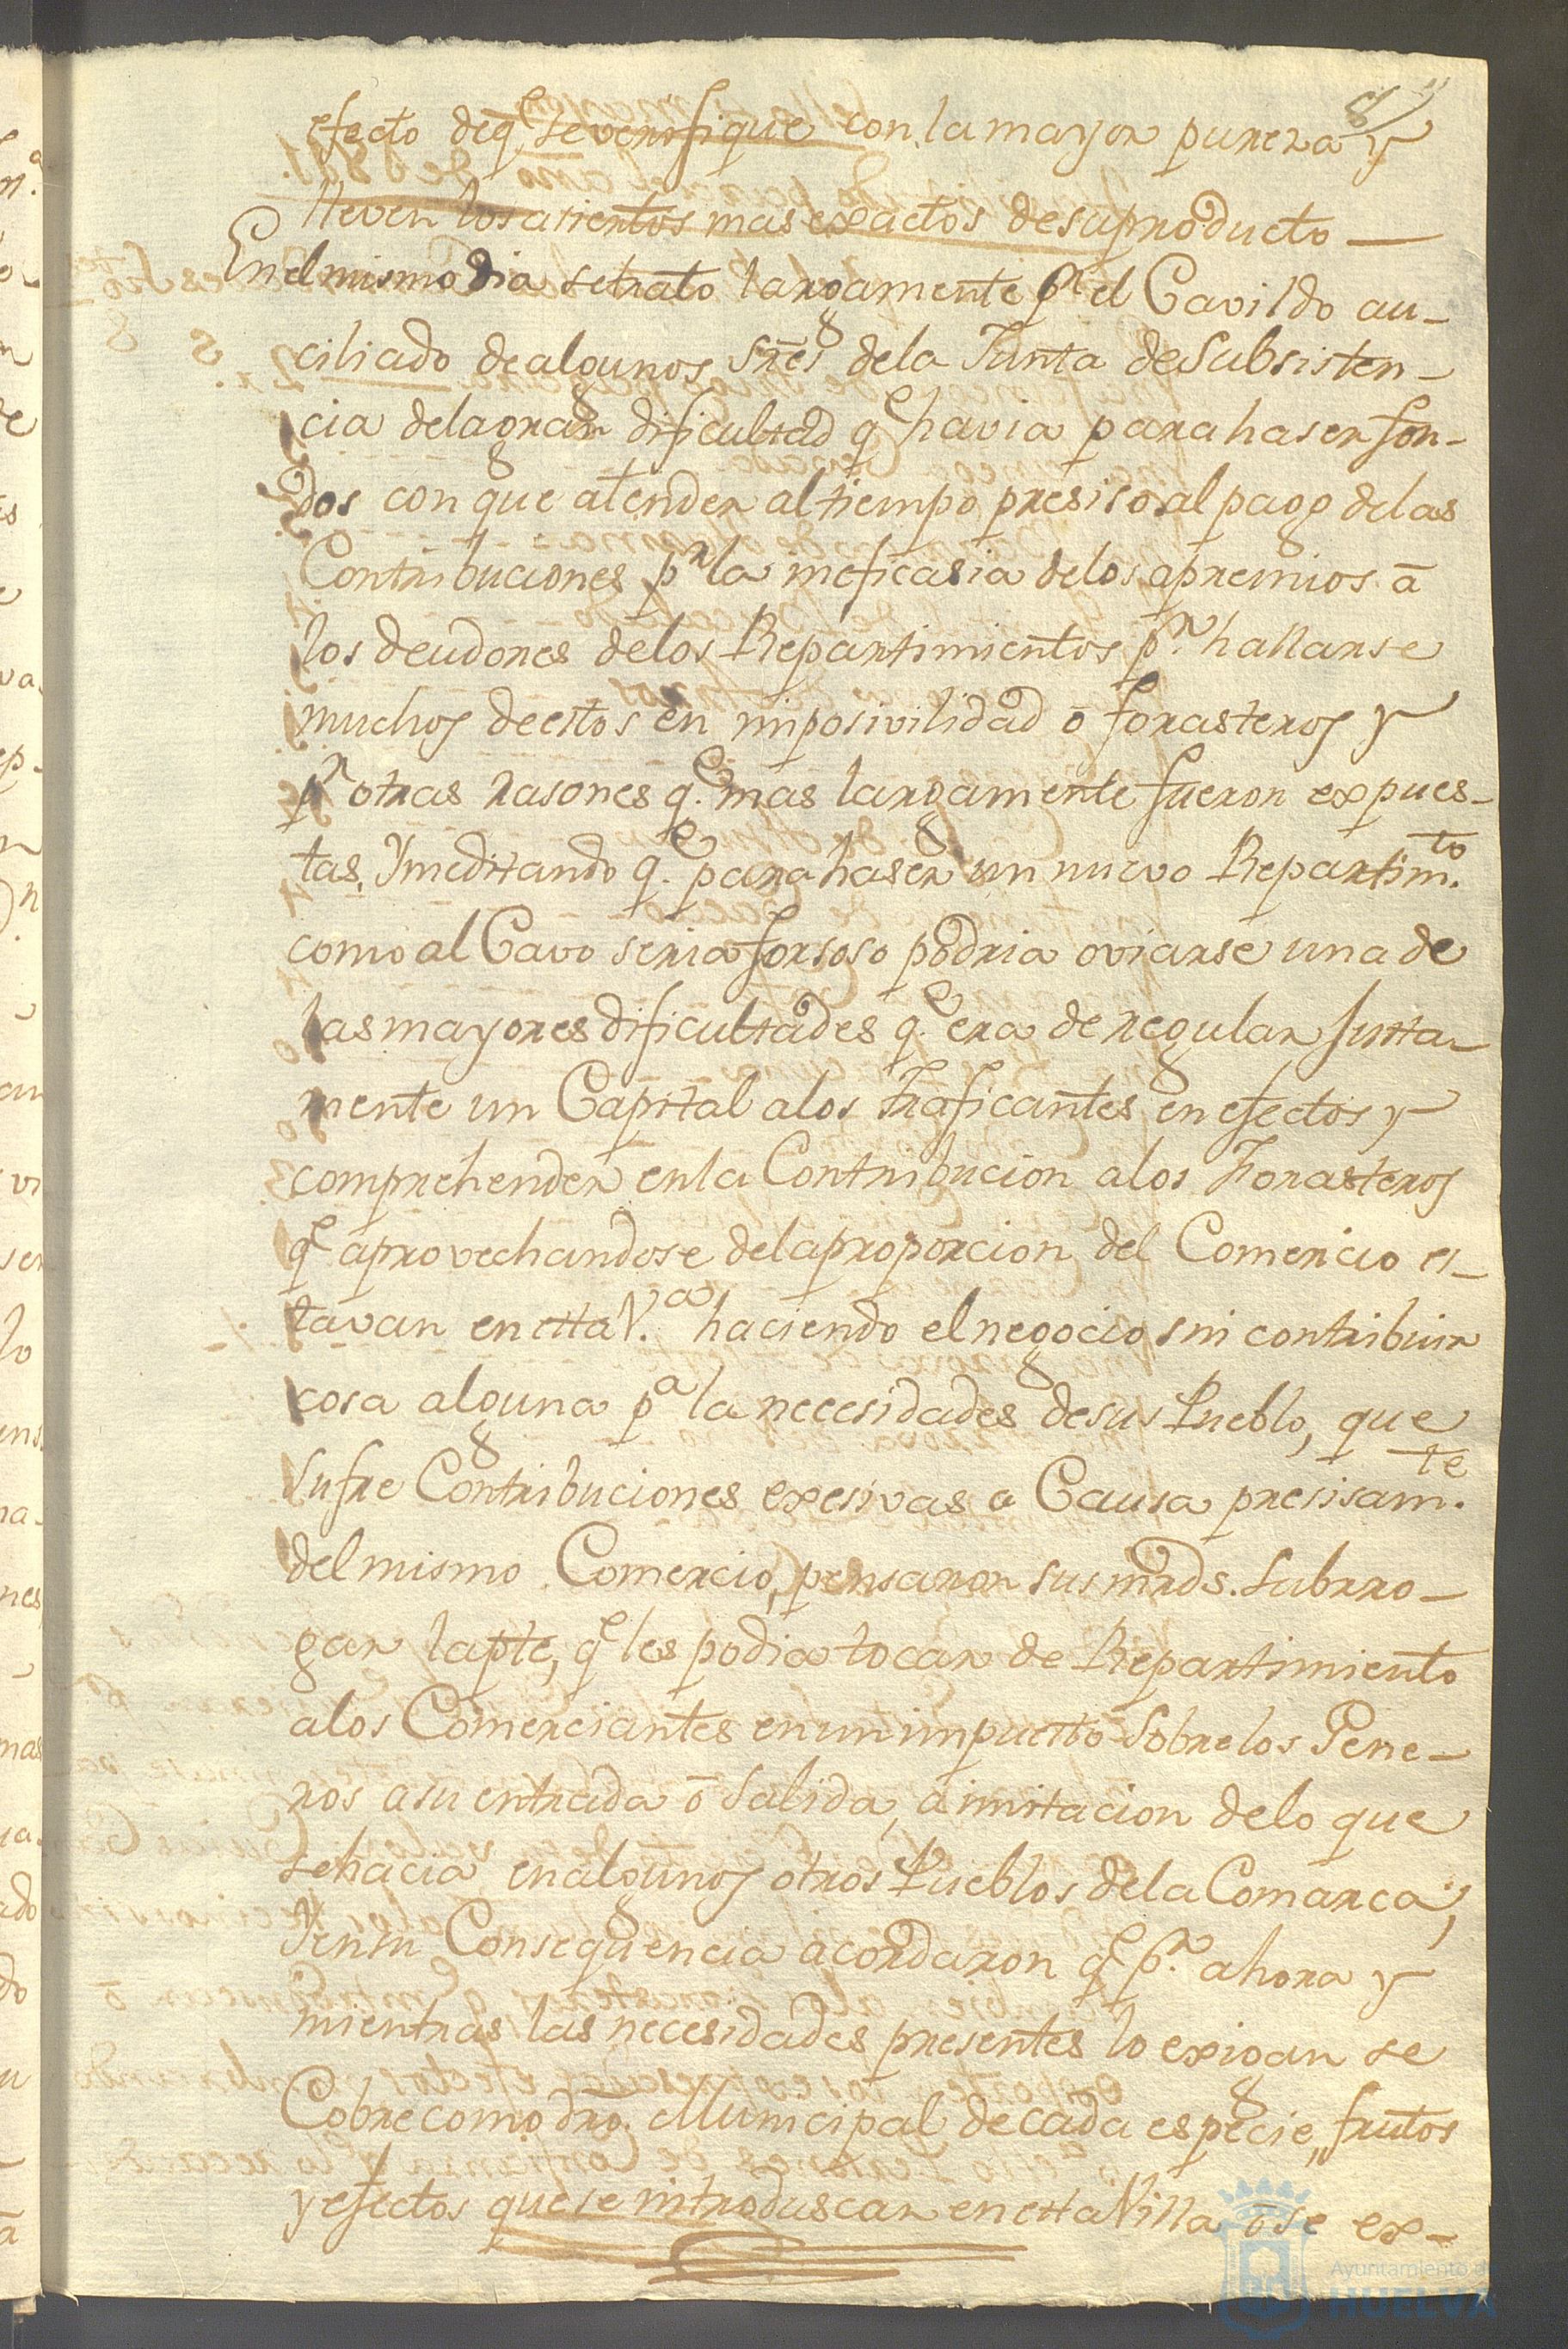 8
efecto deq.e se verifique con la mayor pureza y
lleven los asientos mas exactos de su producto
En el mismo dia se trato largamente p.r el Cavildo au-
ciliado de algunos S.res dela Junta de Subsisten-
cia dela gran dificultad q.e havia para haser fon-
dos con que atender al tiempo presiso al pago delas
Contribuciones p.r la ineficasia delos apremios á
los deudores delos Repartimientos p.r hallarse
muchos de estos en imposivilidad ó forasteros y
p.r otras rasones q.e mas largamente fueron expues-
tas. Y meditando q.e para haser un nuevo Repartim.to
como al Cavo seria forsoso podria oviarse una de
las mayores dificultades q.e era de regular Justa-
mente un Capital a los traficantes en efectos y
comprehender en la Contribucion a los Forasteros
q.e aprovechandose dela proporcion del Comercio es-
tavan en esta V.a haciendo el negocio sin contribuir
cosa alguna p.a la necesidades de sus Pueblo, que
sufre Contribuciones exesivas a Causa presisam.te
del mismo Comercio, pensaron sus mrds. Subrro-
gar la pte, q.e les podia tocar de Repartimiento
a los Comerciantes en un impuesto Sobre los Gene-
ros a su entrada ó Salida, a imitacion delo que
se hacia en algunos otros Pueblos dela Comarca,
Y en su Consequencia acordaron q.e p.r ahora y
mientras las necesidades presentes lo exigan se
Cobre como dro. Municipal de cada especie, frutos
y efectos que se introduscan en esta Villa ó se ex-
Ayuntamiento de
HUELVA